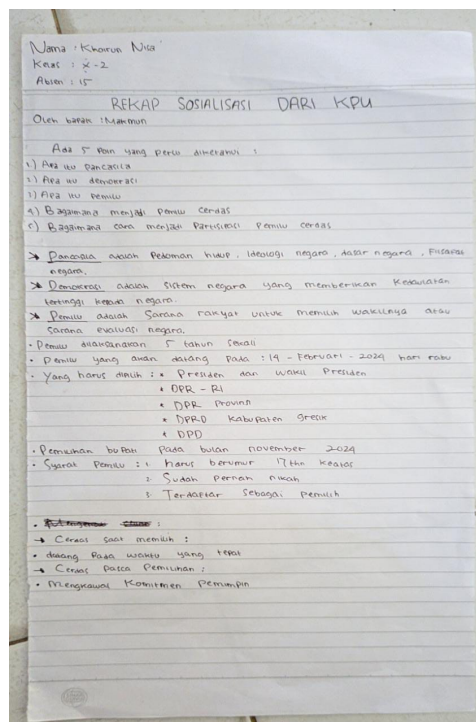 Nama : Khoirun Nisa'
Kelas : X-2
Absen : 15
REKAP SOSIALISASI DARI KPU
Oleh bapak : Makmun
Ada 5 Poin yang perlu diketahui :
1.) Apa itu pancasila
2.) Apa itu demokrasi
3.) Apa itu Pemilu
4.) Bagaimana menjadi Pemilu Cerdas
5.) Bagaimana cara menjadi Partisipasi Pemilu cerdas
* Pancasila adalah Pedoman hidup, ideologi negara, dasar negara, Filsafat
negara.
* Demokrasi adalah sistem negara yang memberikan Kedaulatan
tertinggi kepada negara.
* Pemilu adalah Sarana rakyat untuk memilih wakilnya atau
sarana evaluasi negara.
• Pemilu dilaksanakan 5 tahun sekali
• Pemilu yang akan datang Pada : 14 - Februari - 2024 hari rabu
• Yang harus dipilih : • Presiden dan wakil Presiden
• DPR - RI
• DPR Provinsi
• DPRD Kabupaten gresik
• DPD
• Pemilihan bupati Pada bulan november 2024
• Syarat Pemilu : 1. harus berumur 17 thn keatas
2. Sudah pernah nikah
3. Terdaftar sebagai pemilih
→ Cerdas saat memilih :
• datang Pada waktu yang tepat
→ Cerdas pasca Pemilihan :
• Mengkawal Komitmen Pemimpin